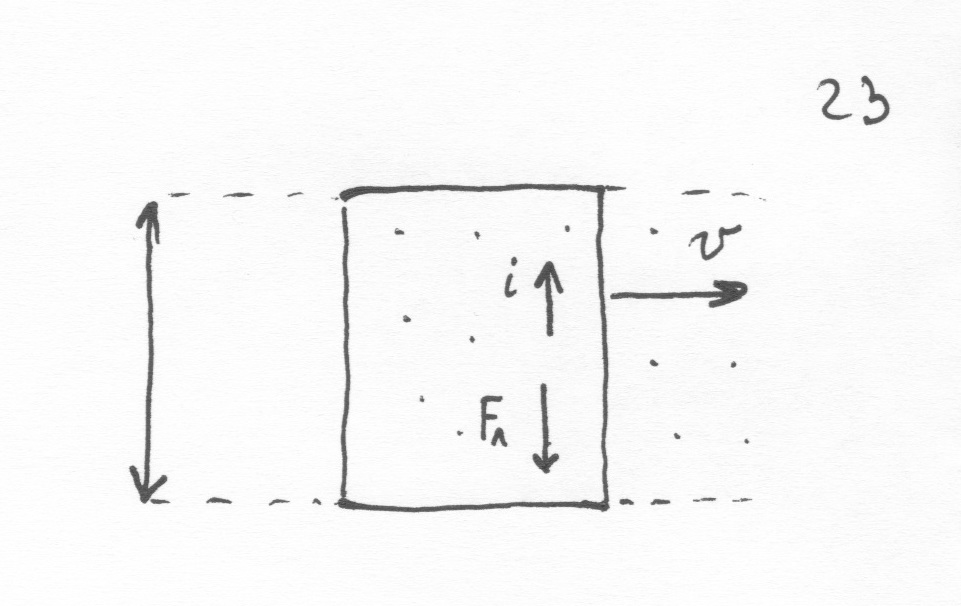 23
v
i
Fл